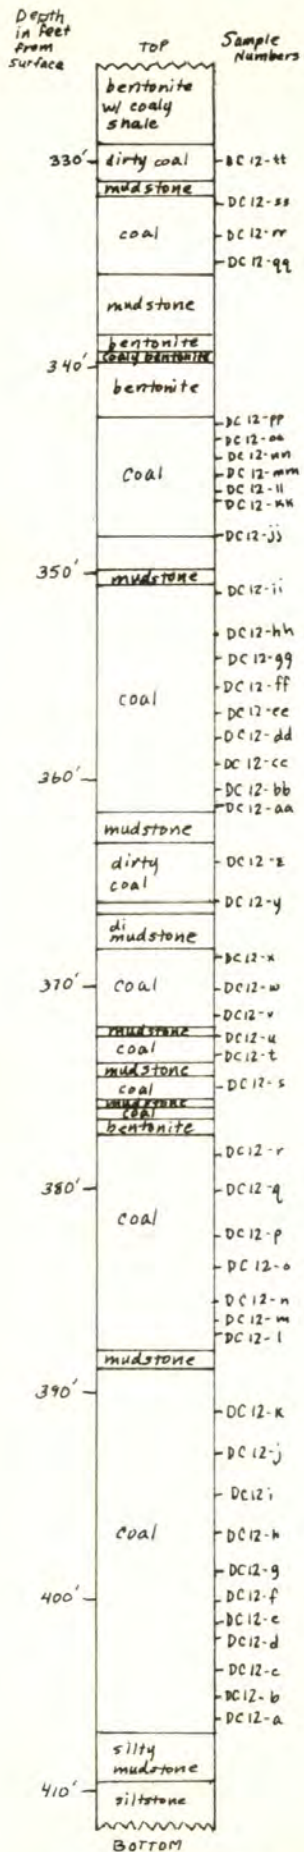 Depth
in feet
from
surface
TOP
Sample
Numbers
bentonite
w/ coaly
shale
330'
dirty coal
DC 12-tt
mudstone
DC 12-ss
coal
DC 12-rr
DC 12-qq
mudstone
bentonite
340'
coaly bentonite
bentonite
DC 12-pp
DC 12-oo
DC 12-nn
coal
DC 12-mm
DC 12-ll
DC 12-kk
DC 12-jj
350'
mudstone
DC 12-ii
DC 12-hh
DC 12-gg
coal
DC 12-ff
DC 12-ee
DC 12-dd
DC 12-cc
360'
DC 12-bb
DC 12-aa
mudstone
dirty
coal
DC 12-z
DC 12-y
di
mudstone
DC 12-x
370'
coal
DC 12-w
DC 12-v
mudstone
DC 12-u
coal
DC 12-t
mudstone
coal
DC 12-s
mudstone
coal
bentonite
DC 12-r
380'
DC 12-q
coal
DC 12-p
DC 12-o
DC 12-n
DC 12-m
DC 12-l
mudstone
390'
DC 12-k
DC 12-j
DC 12 i
coal
DC 12-h
DC 12-g
400'
DC 12-f
DC 12-e
DC 12-d
DC 12-c
DC 12-b
DC 12-a
silty
mudstone
410'
siltstone
BOTTOM